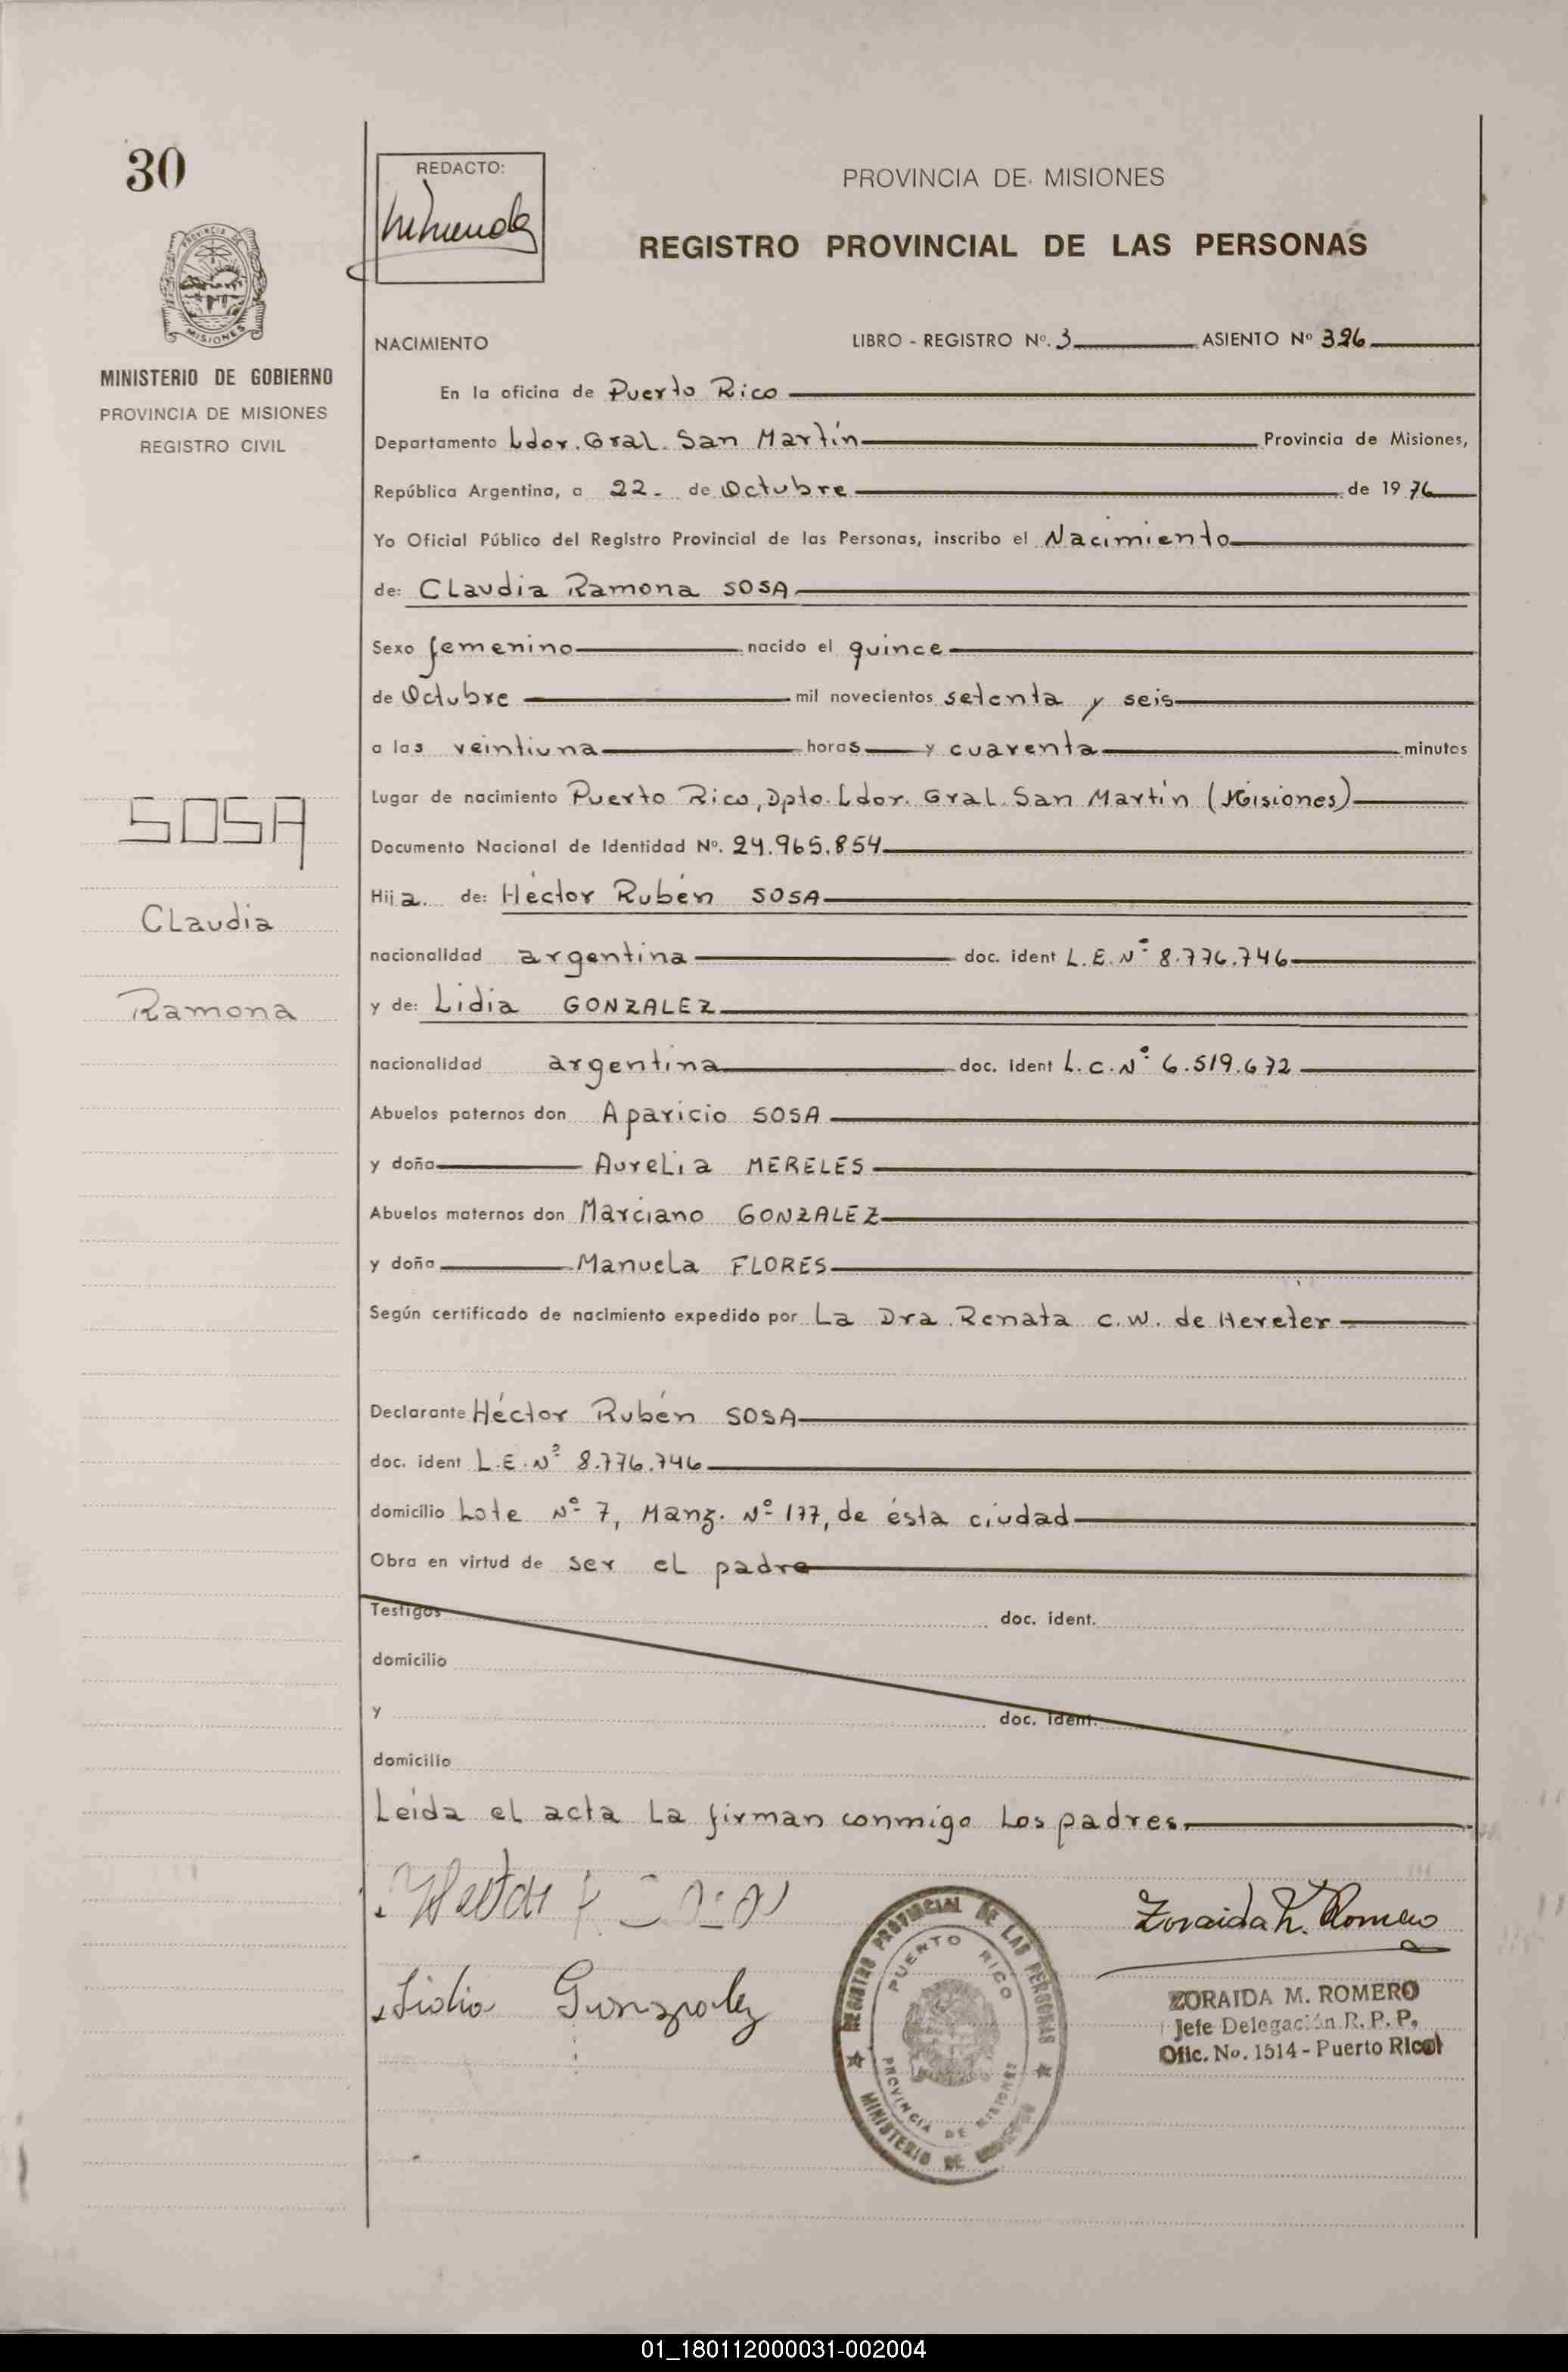 30
REDACTO:
PROVINCIA DE MISIONES
REGISTRO PROVINCIAL DE LAS PERSONAS
PROVINCIA DE MISIONES
MINISTERIO DE GOBIERNO
PROVINCIA DE MISIONES
REGISTRO CIVIL
NACIMIENTO LIBRO - REGISTRO Nº. 3 ASIENTO Nº 396
En la oficina de Puerto Rico
Departamento Ldor. Gral. San Martín Provincia de Misiones,
República Argentina, a 22 - de Octubre de 1976
Yo Oficial Público del Registro Provincial de las Personas, inscribo el Nacimiento
de: Claudia Ramona SOSA
Sexo femenino nacido el quince
de Octubre mil novecientos setenta y seis
a las veintiuna horas y cuarenta minutos
Lugar de nacimiento Puerto Rico, Dpto. Ldor. Gral. San Martín (Misiones)
SOSA
Documento Nacional de Identidad Nº. 24.965.854
Hija de: Héctor Rubén SOSA
Claudia
nacionalidad argentina doc. ident L.E. Nº 8.776.746
Ramona
y de: Lidia GONZALEZ
nacionalidad argentina doc. ident L.C. Nº 6.519.672
Abuelos paternos don Aparicio SOSA
y doña Aurelia MERELES
Abuelos maternos don Marciano GONZALEZ
y doña Manuela FLORES
Según certificado de nacimiento expedido por La Dra. Renata C.W. de Hereter
Declarante Héctor Rubén SOSA
doc. ident L.E. Nº 8.776.746
domicilio Lote Nº 7, Manz. Nº 177, de ésta ciudad
Obra en virtud de ser el padre
Testigos doc. ident.
domicilio
y doc. ident.
domicilio
Leída el acta la firman conmigo los padres.
Hector R Sosa
Zoraida M. Romero
Lidia Gonzalez
REGISTRO PROVINCIAL DE LAS PERSONAS
PUERTO RICO
PROVINCIA DE MISIONES
MINISTERIO DE GOBIERNO
ZORAIDA M. ROMERO
Jefe Delegación R. P. P.
Ofic. No. 1514 - Puerto Rico
01_180112000031-002004